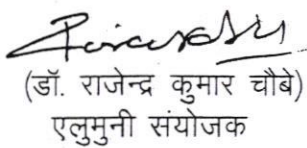 (डॉ. राजेन्द्र कुमार चौबे)
एलुमुनी संयोजक